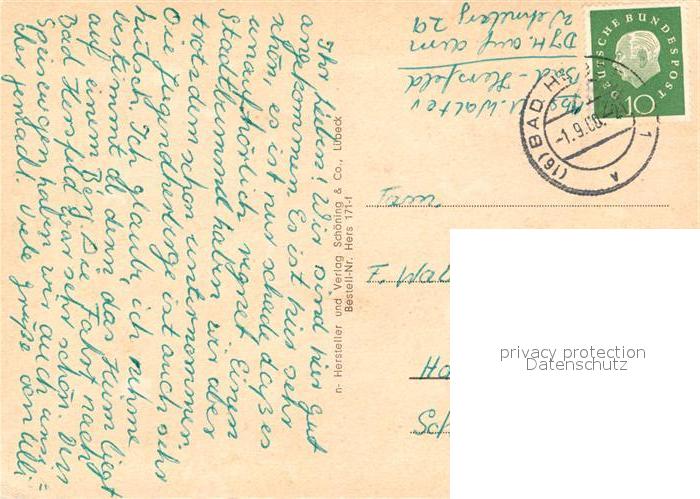 Ihr Lieben! Wir sind hier gut
angekommen. Es ist hier sehr
schön, es ist nur schade, daß es
unaufhörlich regnet. Einen
Stadtbummel haben wir aber
trotzdem schon unternommen.
Die Jugendherberge ist auch sehr
hübsch. Ich glaube, ich nehme
bestimmt d denn das Heim liegt
auf einem Berg. Die Fahrt nach
Bad Hersfeld war sehr schön. Den
Speisewagen haben wir auch unsi=
cher gemacht. Viele Grüße von Ulli
n- Hersteller und Verlag Schöning & Co., Lübeck
Bestell-Nr. Hers 171-I
U. Walter
d-Hersfeld
DJH. auf dem
Wehneberg 29
DEUTSCHE BUNDESPOST
10
(16) BAD H
-1.9.60.
Frau
privacy protection
Datenschutz